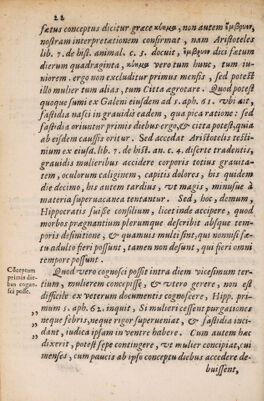 22
fœtus conceptus dicitur græce κύημα, non autem ἔμβρυον,
nostram interpretationem confirmat, nam Aristoteles
lib. 7. de hist. animal. c. 3. docuit, ἔμβρυον dici fœtum
dierum quadraginta, κύημα vero tum hunc, tum iu-
niorem. ergo non excluditur primus mensis, sed potest
illo mulier tum alias, tum Citta ægrotare. Quod potest
quoque sumi ex Galeni eiusdem ad s. aph. 61. vbi ait,
fastidia nasci in grauidis eadem, qua pica ratione: sed
fastidia oriuntur primis diebus ergo, & citta potest, quia
ab eisdem caussis oritur. Sed accedat Aristotelis testi-
nium ex eiusd. lib. 7. de hist. an. c. 4. diserte tradentis,
grauidis mulieribus accidere corporis totius grauita-
tem, oculorum caliginem, capitis dolores, his quidem
die decimo, his autem tardius, vt magis, minusue à
materia superuacanea tentantur. Sed, hoc, demum,
Hippocratis fuisse consilium, licet inde accipere, quod
morbos prægnantium plerumque describit absque tem-
poris definitione, & quamuis multi sint, qui nonnisi fœ-
tu adulto fieri possunt, tamen non desunt, qui fieri omni
tempore possunt.
Cōceptum
primis die-
bus cogno-
sci posse.
Quod vero cognosci possit intra diem vicesimum ter-
tium, mulierem concepisse, & vtero gerere, non est
difficile ex veterum documentis cognoscere, Hipp. pri-
mum s. aph. 61. inquit, Si mulieri cessent purgationes
„ neque febris, neque rigor superueniat, & fastidia inci-
„ dant, iudica ipsam in ventre habere. Cum autem hæc
dixerit, potest sæpe contingere, vt mulier concipiat, cui
menses, cum paucis ab ipso conceptu diebus accedere de-
buissent,